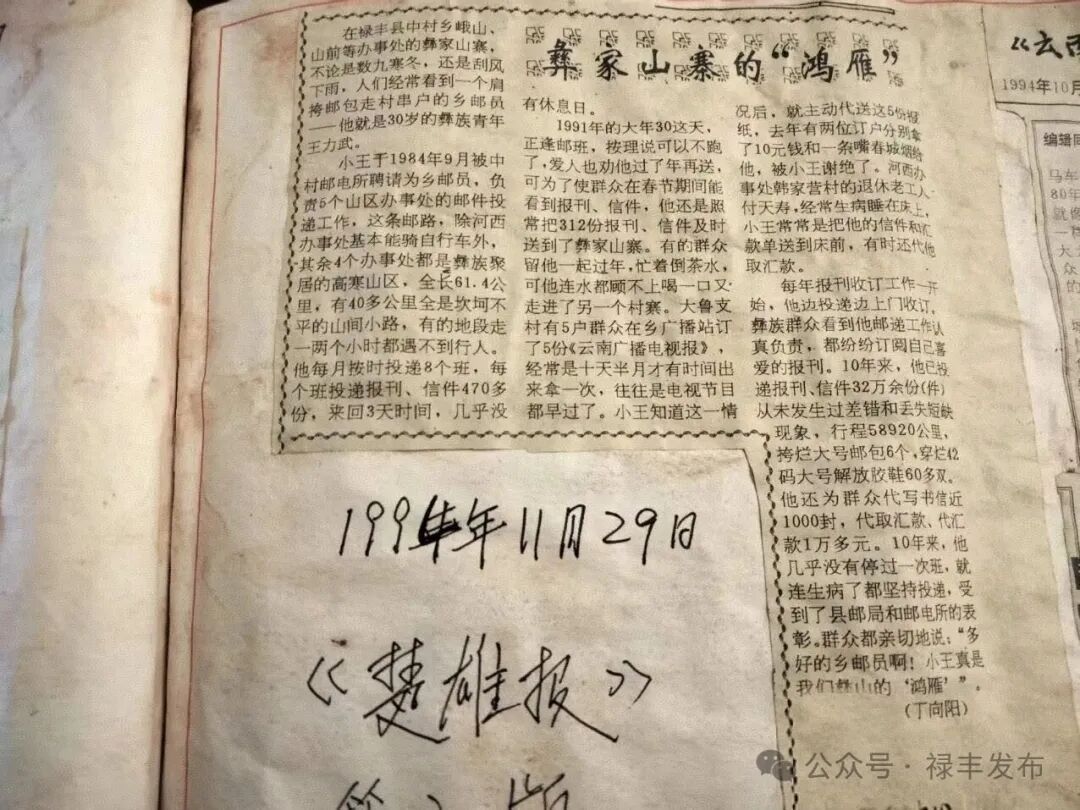 彝家山寨的“鸿雁”
在禄丰县中村乡峨山、
山前等办事处的彝家山寨，
不论是数九寒冬，还是刮风
下雨，人们经常看到一个肩
挎邮包走村串户的乡邮员
——他就是30岁的彝族青年
王力武。
小王于1984年9月被中
村邮电所聘请为乡邮员，负
责5个山区办事处的邮件投
递工作，这条邮路，除河西
办事处基本能骑自行车外，
其余4个办事处都是彝族聚
居的高寒山区，全长61.4公
里，有40多公里全是坎坷不
平的山间小路，有的地段走
一两个小时都遇不到行人。
他每月按时投递8个班，每
个班投递报刊、信件470多
份，来回3天时间，几乎没
有休息日。
1991年的大年30这天，
正逢邮班，按理说可以不跑
了，爱人也劝他过了年再送，
可为了使群众在春节期间能
看到报刊、信件，他还是照
常把312份报刊、信件及时
送到了彝家山寨。有的群众
留他一起过年，忙着倒茶水，
可他连水都顾不上喝一口又
走进了另一个村寨。大鲁支
村有5户群众在乡广播站订
了5份《云南广播电视报》，
经常是十天半月才有时间出
来拿一次，往往是电视节目
都早过了。小王知道这一情
况后，就主动代送这5份报
纸，去年有两位订户分别拿
了10元钱和一条嘴春城烟给
他，被小王谢绝了。河西办
事处韩家营村的退休老工人
付天寿，经常生病睡在床上，
小王常常是把他的信件和汇
款单送到床前，有时还代他
取汇款。
每年报刊收订工作一开
始，他边投递边上门收订，
彝族群众看到他邮递工作认
真负责，都纷纷订阅自己喜
爱的报刊。10年来，他已投
递报刊、信件32万余份(件)
从未发生过差错和丢失短缺
现象，行程58920公里，
挎烂大号邮包6个，穿烂42
码大号解放胶鞋60多双。
他还为群众代写书信近
1000封，代取汇款、代汇
款1万多元。10年来，他
几乎没有停过一次班，就
连生病了都坚持投递，受
到了县邮局和邮电所的表
彰。群众都亲切地说：“多
好的乡邮员啊！小王真是
我们彝山的‘鸿雁’”。
（丁向阳）
1994年11月29日
《楚雄报》
《云
1994年10月
编辑同
马车
80年
就像
一种
公众号·禄丰发布